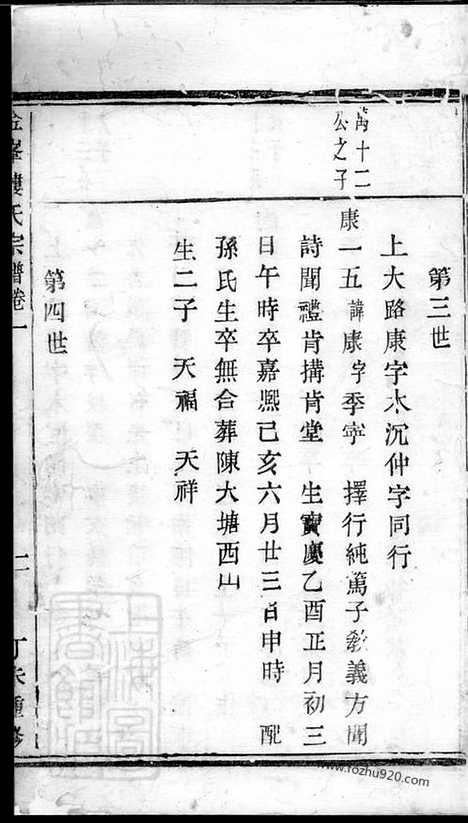 第三世
上大路康字木沉仲字同行
萬十二
公之子
康一五諱康字季寧 擇行純篤子敎義方聞
詩聞禮肯搆肯堂 生寶慶乙酉正月初三
日午時卒嘉熈己亥六月廿三日申時 配
孫氏生卒無合葬陳大塘西山
生二子 天福 天祥
第四世
樓氏宗譜卷一
二
丁未重修
上海圖書館藏
www.fozhu920.com